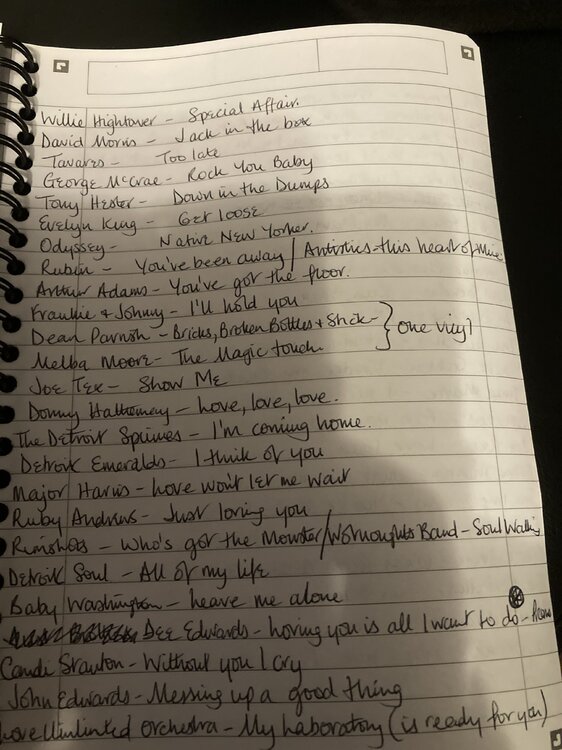 Willie Hightower - Special Affair.
David Morris - Jack in the box
Tavares - Too late
George McCrae - Rock You Baby
Tony Hester - Down in the Dumps
Evelyn King - Get loose
Odyssey - Native New Yorker.
Rubin - You've been away / Artistics - this heart of mine
Arthur Adams - You've got the floor.
Frankie & Johnny - I'll hold you
Dean Parrish - Bricks, Broken Bottles & Stick - } one vinyl
Melba Moore - The Magic touch
Joe Tex - Show Me
Donny Hathaway - Love, love, love.
The Detroit Spinners - I'm coming home.
Detroit Emeralds - I think of you
Major Harris - Love won't let me wait
Ruby Andrews - Just loving you
Rimshots - Who's got the Monster / Band - Soul Walkin
Detroit Soul - All of my life
Baby Washington - Leave me alone
Dee Edwards - Loving you is all I want to do -
Candi Stanton - Without you I cry
John Edwards - Messing up a good thing
Love Unlimited Orchestra - My Laboratory (is ready for you)